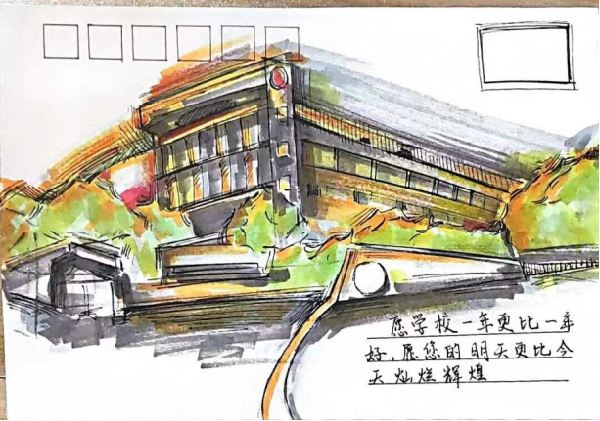 愿学校一年更比一年
好，愿您的明天更比今
天灿烂辉煌